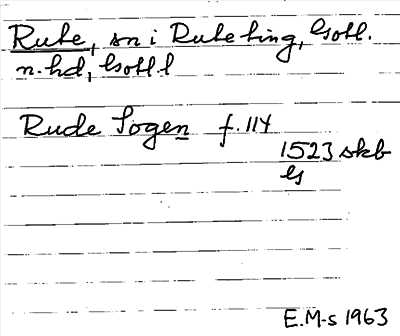 Rute, sn i Rute ting, Gotl.
n. hd, Gotl l
Rude Sogen f. 114
1523 skb
ls
E.M-s 1963